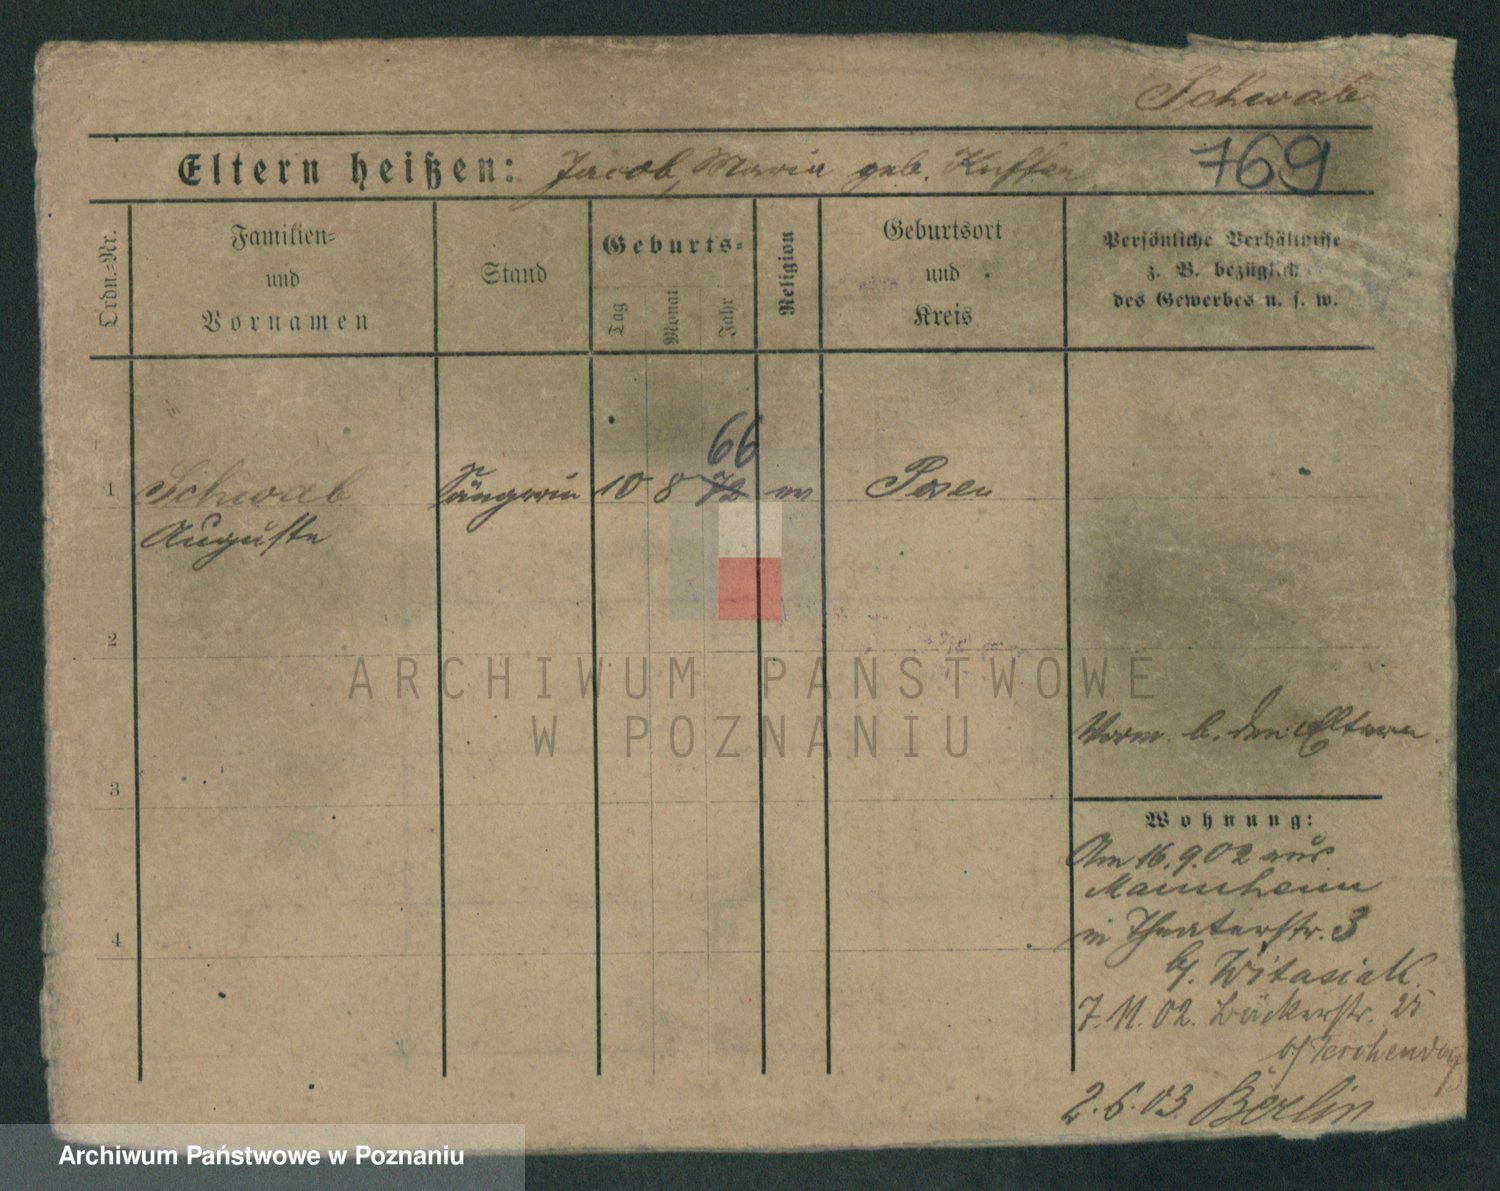 Schwab
Eltern heißen: Jacob, Maria geb. Kuffer
769
Ordn.-Nr.
Familien-
und
Vornamen
Stand
Geburts-
Tag
Monat
Jahr
Religion
Geburtsort
und
Kreis
Persönliche Verhältnisse
z. B. bezüglich
des Gewerbes u. s. w.
66
1 Schwab Sängerin 10 8 72 Posen
Auguste
2
ARCHIWUM PAŃSTWOWE
W POZNANIU
Vorm. b. den Eltern.
3
Wohnung:
Am 16.9.02 aus
Mannheim
in Theaterstr. 3
4
b/. Witasiak.
7.11.02. Bäckerstr. 25
2.6.03. Berlin
Archiwum Państwowe w Poznaniu